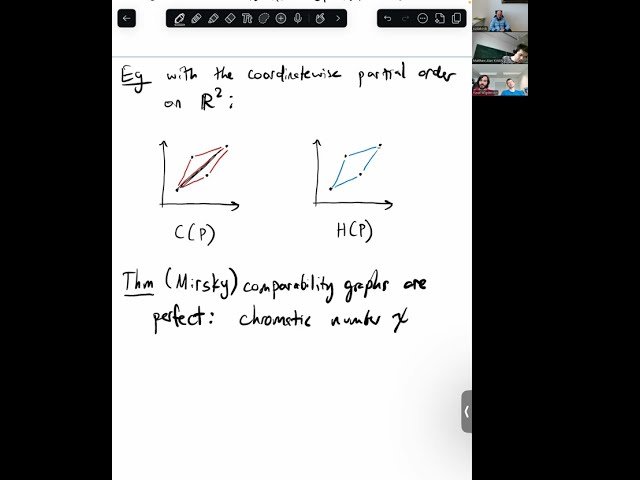 Eg with the coordinatewise partial order
on ℝ²:
C(P)
H(P)
Thm (Mirsky) comparability graphs are
perfect: chromatic number χ